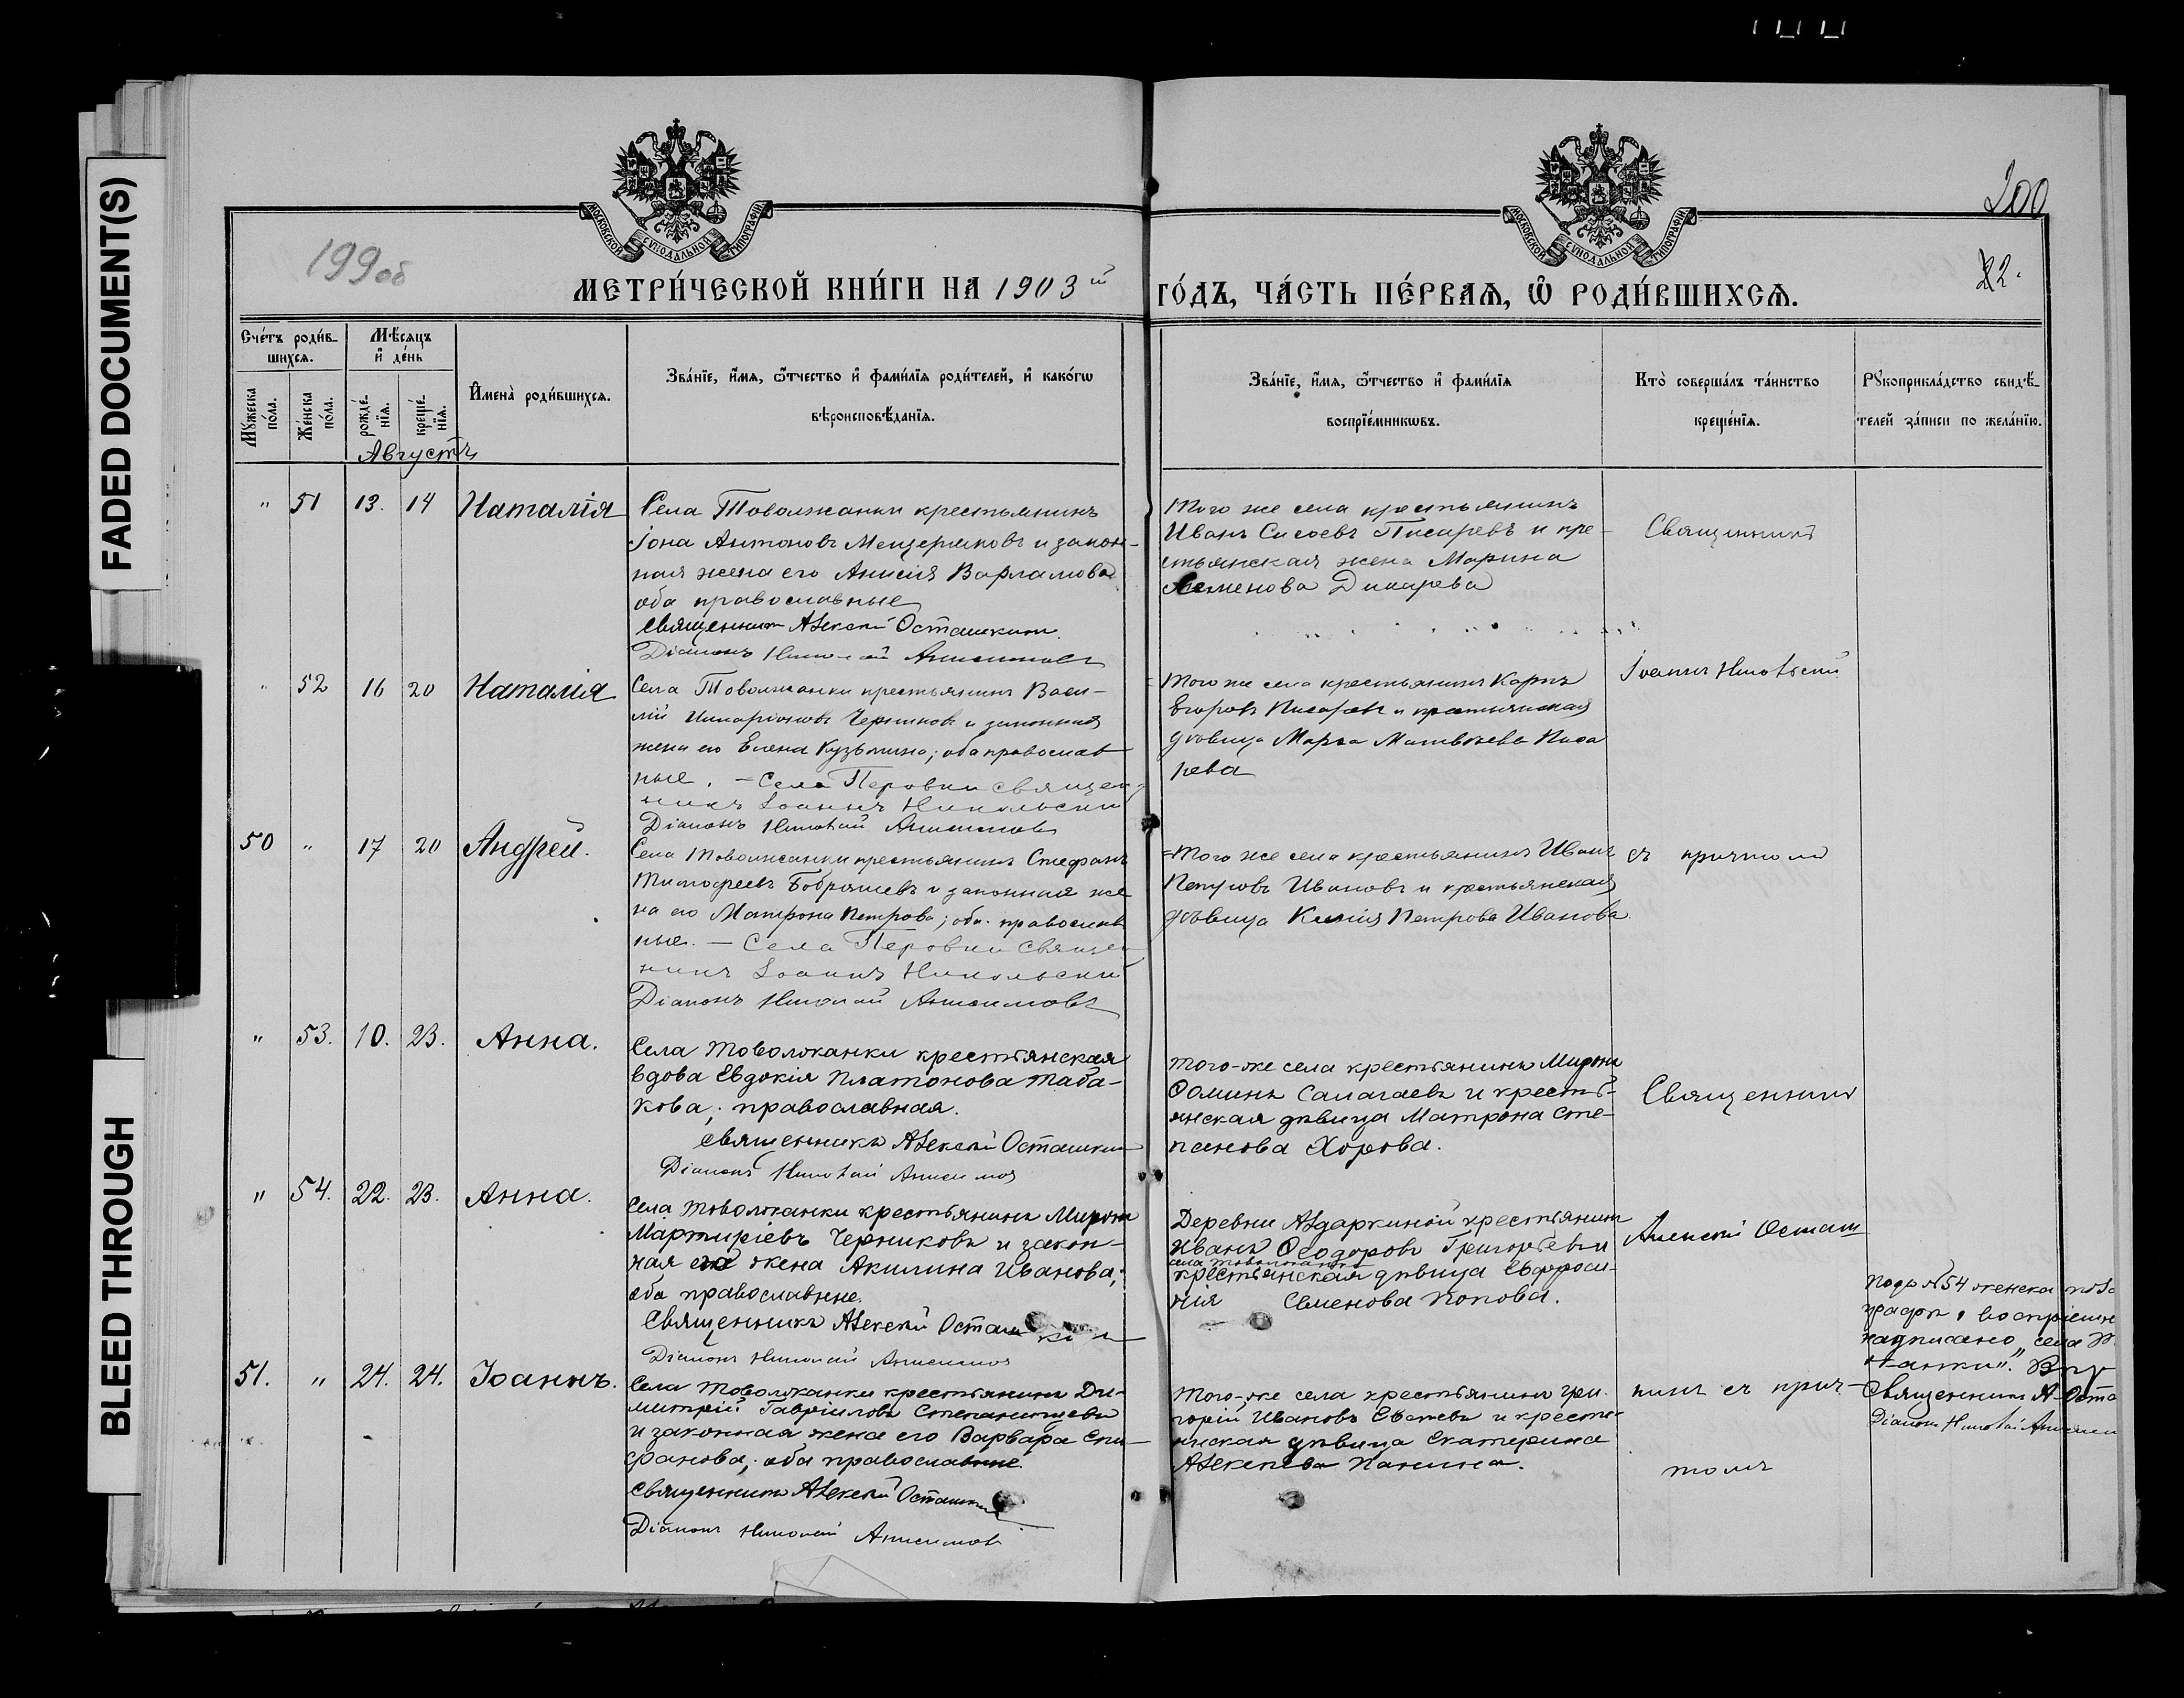 FADED DOCUMENT(S)
BLEED THROUGH
МОСКОВСКОЙ СУНОДАЛЬНОЙ ТИПОГРАФІИ
МОСКОВСКОЙ СУНОДАЛЬНОЙ ТИПОГРАФІИ
200
199об
22.
МЕТРИ́ЧЕСКОЙ КНИ́ГИ НА 1903й
ГО́ДЪ, ЧА́СТЬ ПЕ́РВАѦ, Ѡ҆ РОДИ́ВШИХСѦ.
Сче́тъ роди́в-
шихсѧ.
Мѣ́сѧцъ
и҆ де́нь
Мꙋ́жеска по́ла.
Же́нска по́ла.
рожде́-нїѧ.
креще́-нїѧ.
И҆мена̀ роди́вшихсѧ.
Зва́нїе, и҆́мѧ, ѻ҆́тчество и҆ фами́лїѧ роди́телей, и҆ како́гѡ
вѣроисповѣ́данїѧ.
Зва́нїе, и҆́мѧ, ѻ҆́тчество и҆ фами́лїѧ
воспрїе́мникѡвъ.
Кто̀ соверша́лъ та́инство
креще́нїѧ.
Рꙋкоприкла́дство свидѣ́-
телей за́писи по жела́нїю.
Августъ
" 51 13. 14 Наталія
Села Товолжанки крестьянинъ
Іона Антоновъ Мещеряковъ и закон-
ная жена его Анисія Варламова
оба православные
Священникъ Алексій Осташкинъ
Діаконъ Николай Анисимовъ
Того же села крестьянинъ
Иванъ Сисоевъ Писаревъ и кре-
стьянская жена Марина
Семенова Дикарева
Священникъ
" 52 16 20 Наталія
Села Товолжанки крестьянинъ Васи-
лій Иларіоновъ Черниковъ и законная
жена его Елена Кузьмина; оба православ
ные. - Села Перовки священ
никъ Іоаннъ Никольскій
Діаконъ Николай Анисимовъ
Того же села крестьянинъ Карпъ
Егоровъ Писаревъ и крестьянская
дѣвица Марѳа Матвѣева Писа
рева
Іоаннъ Никольскій
50 " 17 20 Андрей.
Села Товолжанки крестьянинъ Стефанъ
Тимофеевъ Бобряшевъ и законная же
на его Матрона Петрова; оба православ
ные. - Села Перовки священ
никъ Іоаннъ Никольскій
Діаконъ Николай Анисимовъ
Того же села крестьянинъ Иванъ
Петровъ Ивановъ и крестьянская
дѣвица Ксенія Петрова Иванова.
съ причтомъ
" 53. 10. 23. Анна.
Села Товолжанки крестьянская
вдова Евдокія Платонова Таба-
кова; православная.
Священникъ Алексій Осташкинъ
Діаконъ Николай Анисимовъ
Того-же села крестьянинъ Миронъ
Ѳоминъ Салагаевъ и кресть-
янская дѣвица Матрона Сте-
панова Хорова.
Священникъ
" 54. 22. 23. Анна.
Села Товолжанки крестьянинъ Миронъ
Мартиріевъ Черниковъ и закон-
ная его жена Акилина Иванова;
оба православные.
Священникъ Алексій Осташкинъ
Діаконъ Николай Анисимовъ
Деревни Аздаркиной крестьянинъ
Иванъ Ѳеодоровъ Григорьевъ и
села Товолжанки
крестьянская дѣвица Евфроси-
нія Семенова Попова.
Алексій Осташ
Подъ №54 женска пола
графѣ о воспріемн
надписано „села Т
жанки".
Священникъ А. Оста
Діаконъ Николай Анисим
51. " 24. 24. Іоаннъ.
Села Товолжанки крестьянинъ Ди-
митрій Гавріиловъ Степанищевъ
и законная жена его Варвара Епи-
фанова; оба православные
Священникъ Алексій Осташкинъ
Діаконъ Николай Анисимовъ
Того-же села крестьянинъ Гри-
горій Ивановъ Евсеевъ и кресть-
янская дѣвица Екатерина
Алексѣева Панина.
кинъ съ прич-
томъ